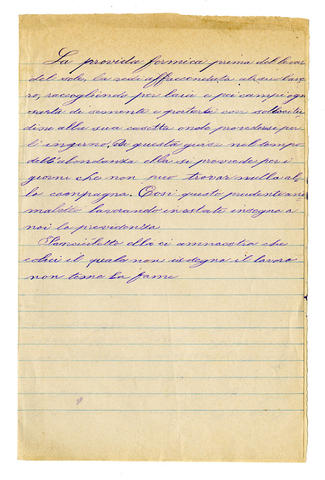 La provida formica prima del levar
del sole, la vedi affaccendata al suo lavo
ro, raccogliendo per l'aia e pei campi ogni
sorta di semente e portarle con sollecitu
dine alla sua casetta onde provedersi per
l'inverno. In questa guisa nel tempo
dell'abondanza ella si provvede per i
giorni che non può trovar nulla al
la campagna. Così questo prudente ani
maletto lavorando in estate insegna a
noi la previdenza
ella ci ammaestra che
colui il quale non isdegna il lavoro
non teme la fame